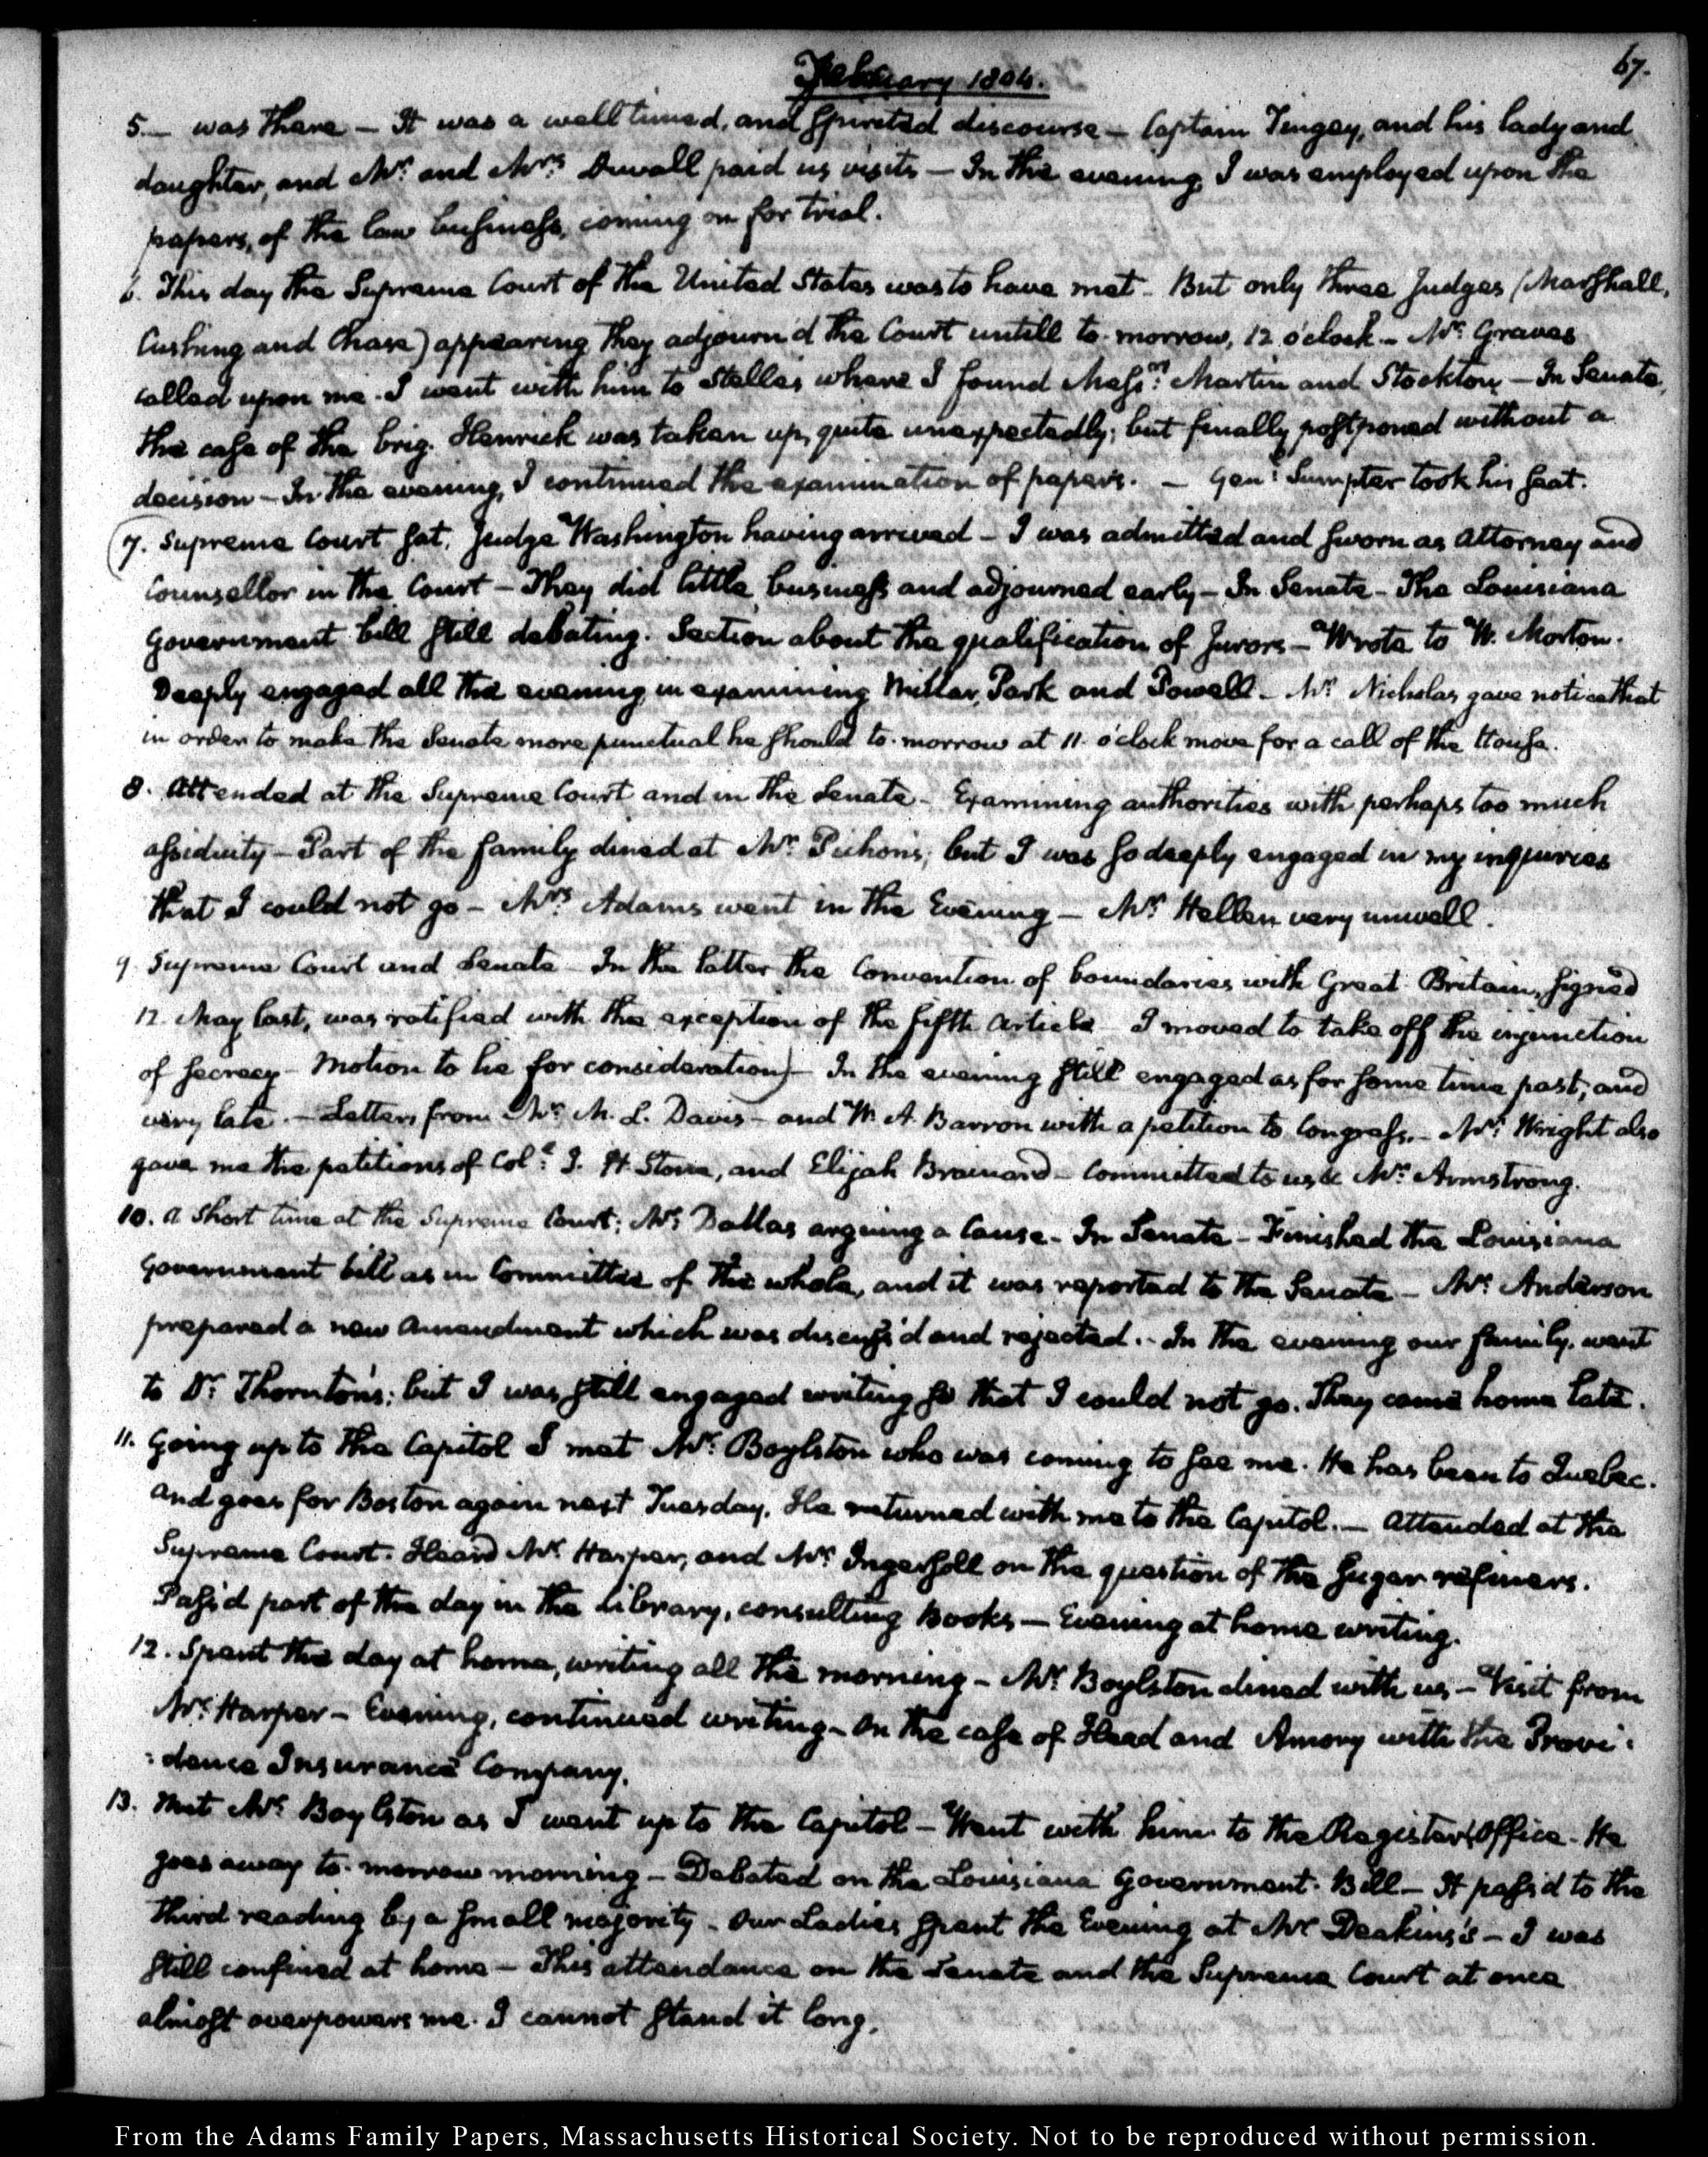 February 1804.
67.
5. — was there — It was a well timed, and spirited discourse — Captain Tingey, and his lady and
daughter, and Mr. and Mrs. Duvall paid us visits — In the evening, I was employed upon the
papers, of the law business, coming on for trial.
6. This day the Supreme Court of the United States was to have met — But only three Judges (Marshall,
Cushing and Chase) appearing they adjourn'd the Court untill to-morrow, 12 o'clock — Mr. Graves
called upon me. I went with him to Stelle's where I found Messrs. Martin and Stockton — In Senate,
the case of the brig. Henrick was taken up, quite unexpectedly; but finally postponed without a
decision — In the evening, I continued the examination of papers. — Genl. Sumpter took his seat.
7. Supreme Court sat, Judge Washington having arrived — I was admitted and sworn as Attorney and
Counsellor in the Court — They did little business and adjourned early — In Senate — The Louisiana
Government bill still debating. Section about the qualification of Jurors — Wrote to W. Morton.
Deeply engaged all the evening in examining Millar, Park and Powell — Mr. Nicholas gave notice that
in order to make the Senate more punctual he should to-morrow at 11. o'clock move for a call of the House.
8. Attended at the Supreme Court and in the Senate — Examining authorities with perhaps too much
assiduity — Part of the family dined at Mr. Pichon's; but I was so deeply engaged in my inquiries
that I could not go — Mrs. Adams went in the Evening — Mr. Hellen very unwell.
9. Supreme Court and Senate — In the latter the Convention of boundaries with Great Britain, signed
12. May last, was ratified with the exception of the fifth article — I moved to take off the injunction
of secrecy — Motion to lie for consideration) — In the evening still engaged as for some time past; and
very late. — Letters from Mr. M. L. Davis — and W. A. Barron with a petition to Congress. — Mr. Wright also
gave me the petitions of Coll. J. H. Stone, and Elijah Brainard — Committed to us & Mr. Armstrong.
10. A short time at the Supreme Court; Mr. Dallas arguing a Cause — In Senate — Finished the Louisiana
Government bill as in Committee of the whole, and it was reported to the Senate — Mr. Anderson
prepared a new Amendment which was discuss'd and rejected. — In the evening our family, went
to Dr. Thornton's; but I was still engaged writing so that I could not go. They came home late.
11. Going up to the Capitol I met Mr. Boylston who was coming to see me. He has been to Quebec.
and goes for Boston again next Tuesday. He returned with me to the Capitol. — Attended at the
Supreme Court. Heard Mr. Harper, and Mr. Ingersoll on the question of the Sugar refiners.
Pass'd part of the day in the library, consulting Books — Evening at home writing.
12. Spent the day at home, writing all the morning — Mr. Boylston dined with us — Visit from
Mr. Harper — Evening, continued writing — On the case of Head and Amory with the Provi-
-dence Insurance Company.
13. Met Mr. Boylston as I went up to the Capitol — Went with him to the Register's Office — He
goes away to-morrow morning — Debated on the Louisiana Government Bill — It pass'd to the
third reading by a small majority — Our Ladies spent the Evening at Mr. Deakins's — I was
still confined at home — This attendance on the Senate and the Supreme Court at once
almost overpowers me. I cannot stand it long.
From the Adams Family Papers, Massachusetts Historical Society. Not to be reproduced without permission.